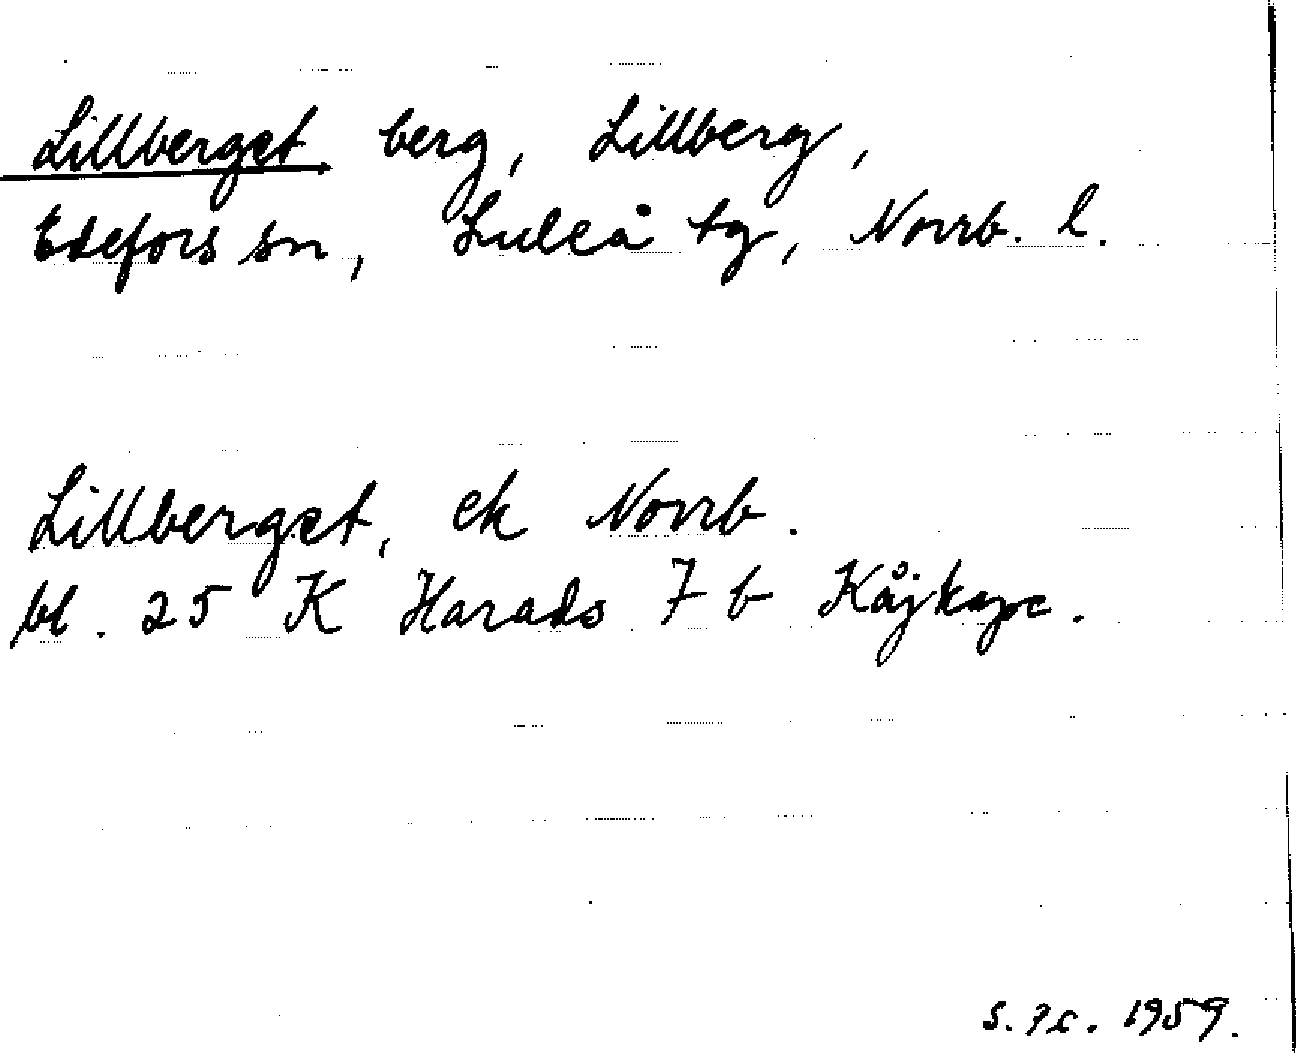 Lillberget berg, Lillberg,
Edefors sn, Luleå tg, Norrb. l.
Lillberget, ek Norrb.
bl. 25 K Harads 7 b
1959.